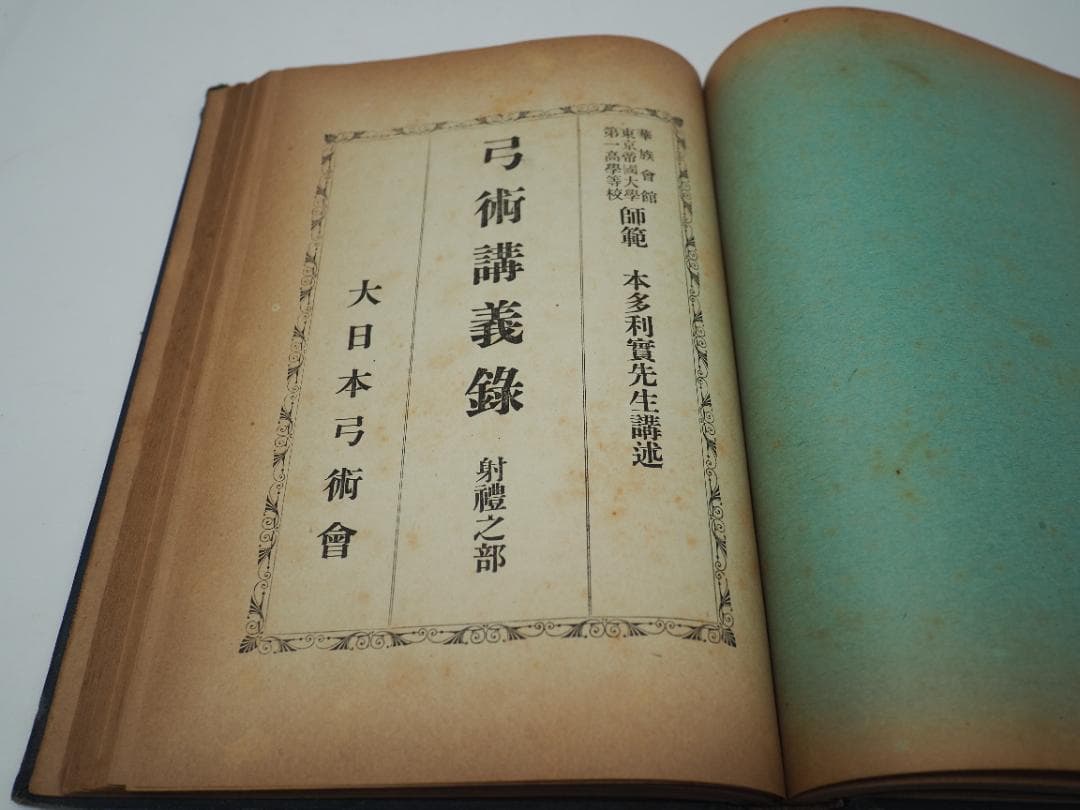 華族會館
東京帝國大學
第一高等學校
師範　本多利實先生講述
弓術講義錄　射禮之部
大日本弓術會